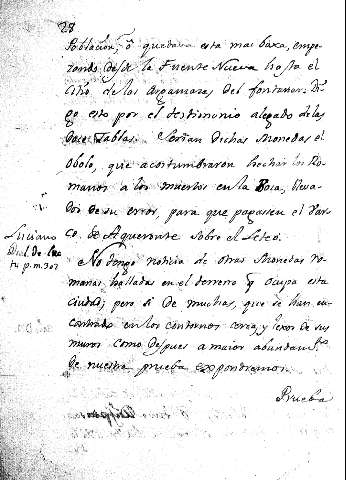 28
Poblacion, ò quedava esta mas baxa, empe-
zando desde la Fuente Nueva hasta el
citio de las Argamazas del fontanar. Di-
go esto por el testimonio alegado de las
Doce Tablas. Serian dichas Monedas el
Obolo, que acostumbraron hechar los Ro-
manos a los muertos en la Boca, lleva-
dos de su error, para que pagasen el Bar-
co de Aqueronte sobre el Leteo.
Luciano
Dial. de
tu p.m.307
No tengo noticia de otras Monedas Ro-
manas halladas en el terreno q ocupa esta
ciudad; pero si de muchas, que se han en-
contrado en los contornos cerca, y lexos de sus
muros como despues a maior abundam.to
de nuestra prueba expondremos.
Prueba